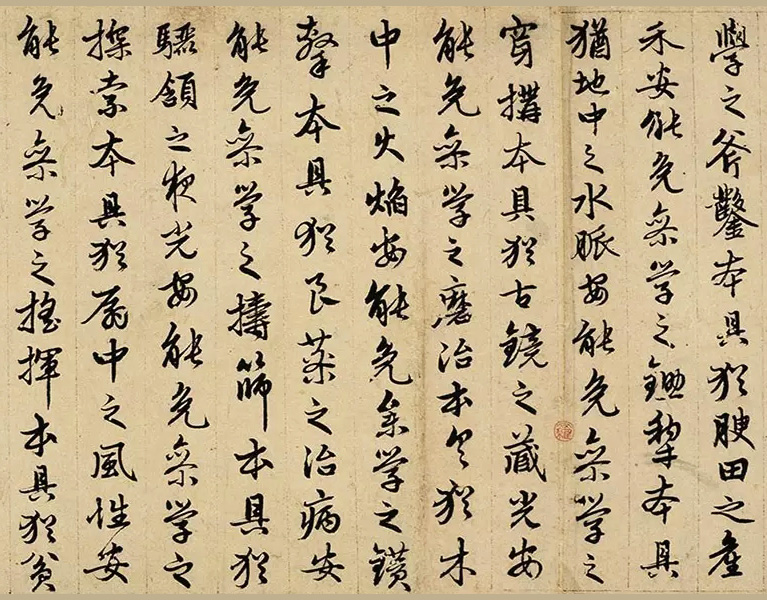 學之斧鑿本具猶腴田之產
禾安能免參学之鋤犂本具
猶地中之水脈安能免參学之
穿搆本具猶古鏡之藏光安
能免參学之磨治本具猶木
中之火焰安能免參学之鑽
本具猶良藥之治病安
能免參学之擣篩本具猶
驪頷之夜光安能免參学之
探索本具猶扇中之風性安
能免參学之搖揮本具猶貧